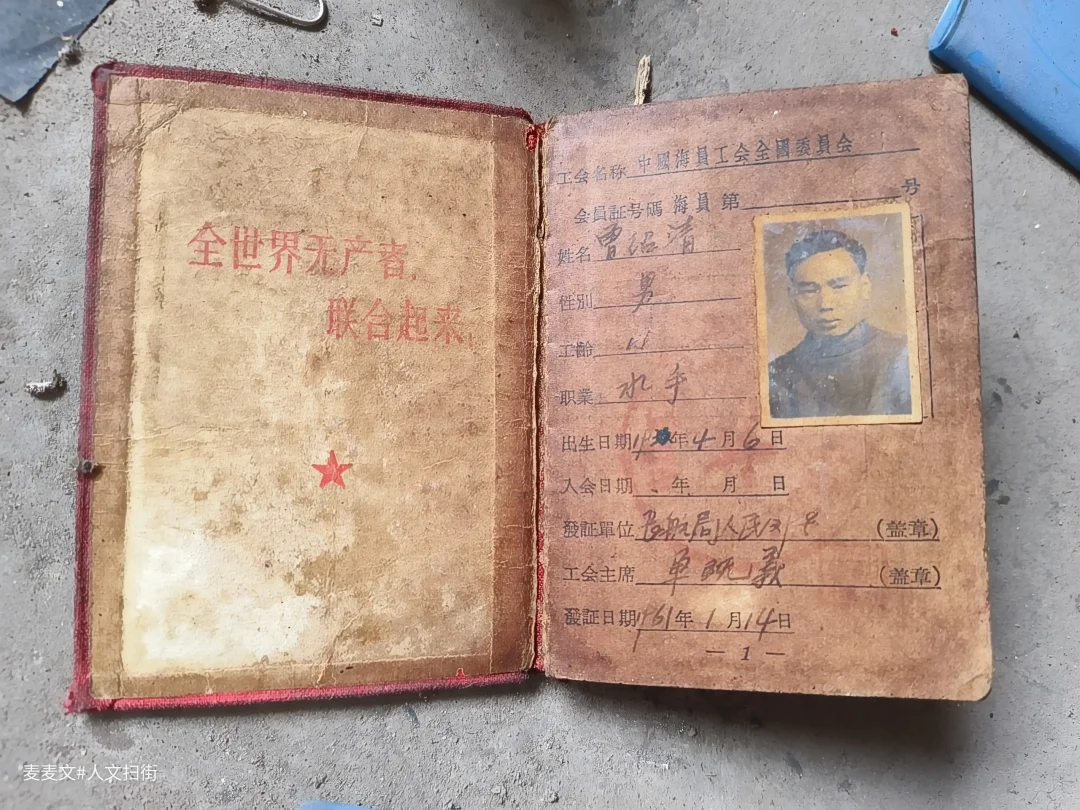 全世界无产者，
联合起来！
工会名称 中國海員工会全國委員会
会員証号碼 海員 第 号
姓名 曹绍清
性别 男
工齡
职業 水手
出生日期 年4月6日
入会日期 年 月 日
發証單位 航局人民 号 (盖章)
工会主席 (盖章)
發証日期1961年1月14日
— 1 —
麦麦文#人文扫街